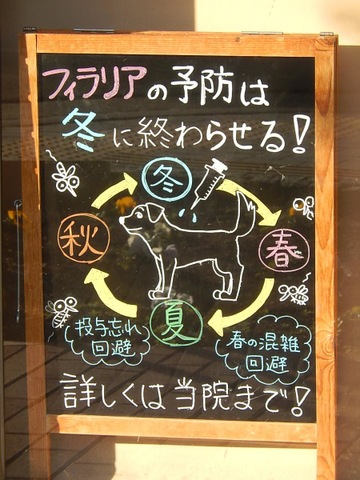 フィラリアの予防は
冬に終わらせる!
冬
秋
春
夏
投与忘れ
回避
春の混雑
回避
詳しくは当院まで!